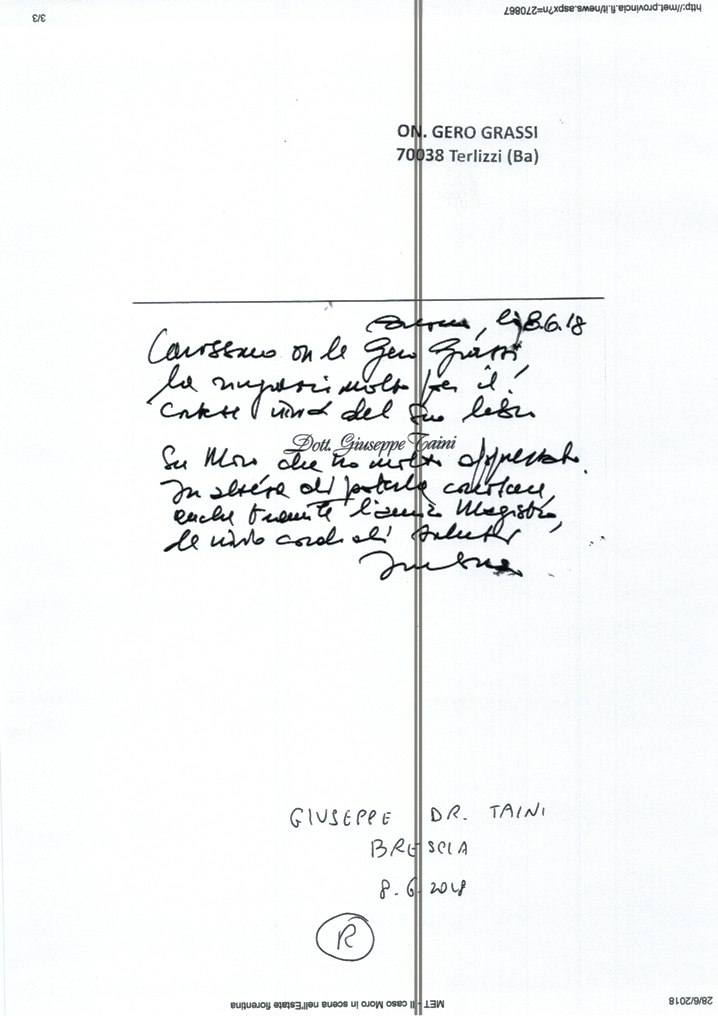 http://met.provincia.fi.it/news.aspx?n=270867
3/3
ON. GERO GRASSI
70038 Terlizzi (Ba)
, lì 8.6.18
Carissimo on le Gero Grassi,
La ringrazio molto per il
cortese invio del Suo libro
Dott. Giuseppe Taini
Su Moro che ho molto apprezzato.
In attesa di poterla
anche tramite l'amico
Le invio cordiali saluti
GIUSEPPE DR. TAINI
BRESCIA
8.6.2018
R
MET - Il caso Moro in scena nell'Estate fiorentina
28/6/2018